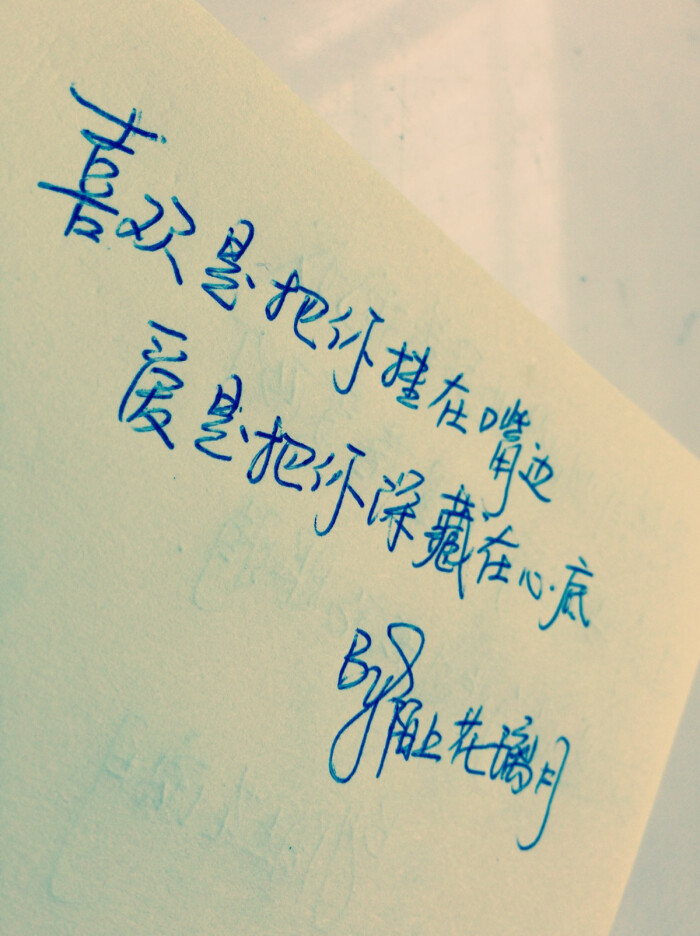 喜欢是把你挂在嘴边
爱是把你深藏在心底
By 陌上花璃月